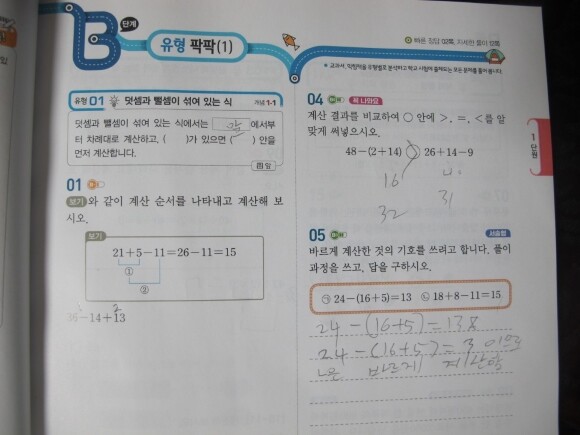 B 단계
유형 팍팍(1)
빠른 정답 02쪽, 자세한 풀이 12쪽
유형 01 덧셈과 뺄셈이 섞여 있는 식 개념 1-1
덧셈과 뺄셈이 섞여 있는 식에서는 앞 에서부
터 차례대로 계산하고, ( )가 있으면 ( ) 안을
먼저 계산합니다.
답 앞
01
보기 와 같이 계산 순서를 나타내고 계산해 보
시오.
보기
21+5-11=26-11=15
①
②
36-14+13
04 꼭 나와요
계산 결과를 비교하여 ○ 안에 >, =, <를 알
맞게 써넣으시오.
48-(2+14) ○ 26+14-9
16
31
32
05 서술형
바르게 계산한 것의 기호를 쓰려고 합니다. 풀이
과정을 쓰고, 답을 구하시오.
㉠ 24-(16+5)=13 ㉡ 18+8-11=15
24-(16+5)=13
24-(16+5)=3 이므로
바르게 계산함
1단원